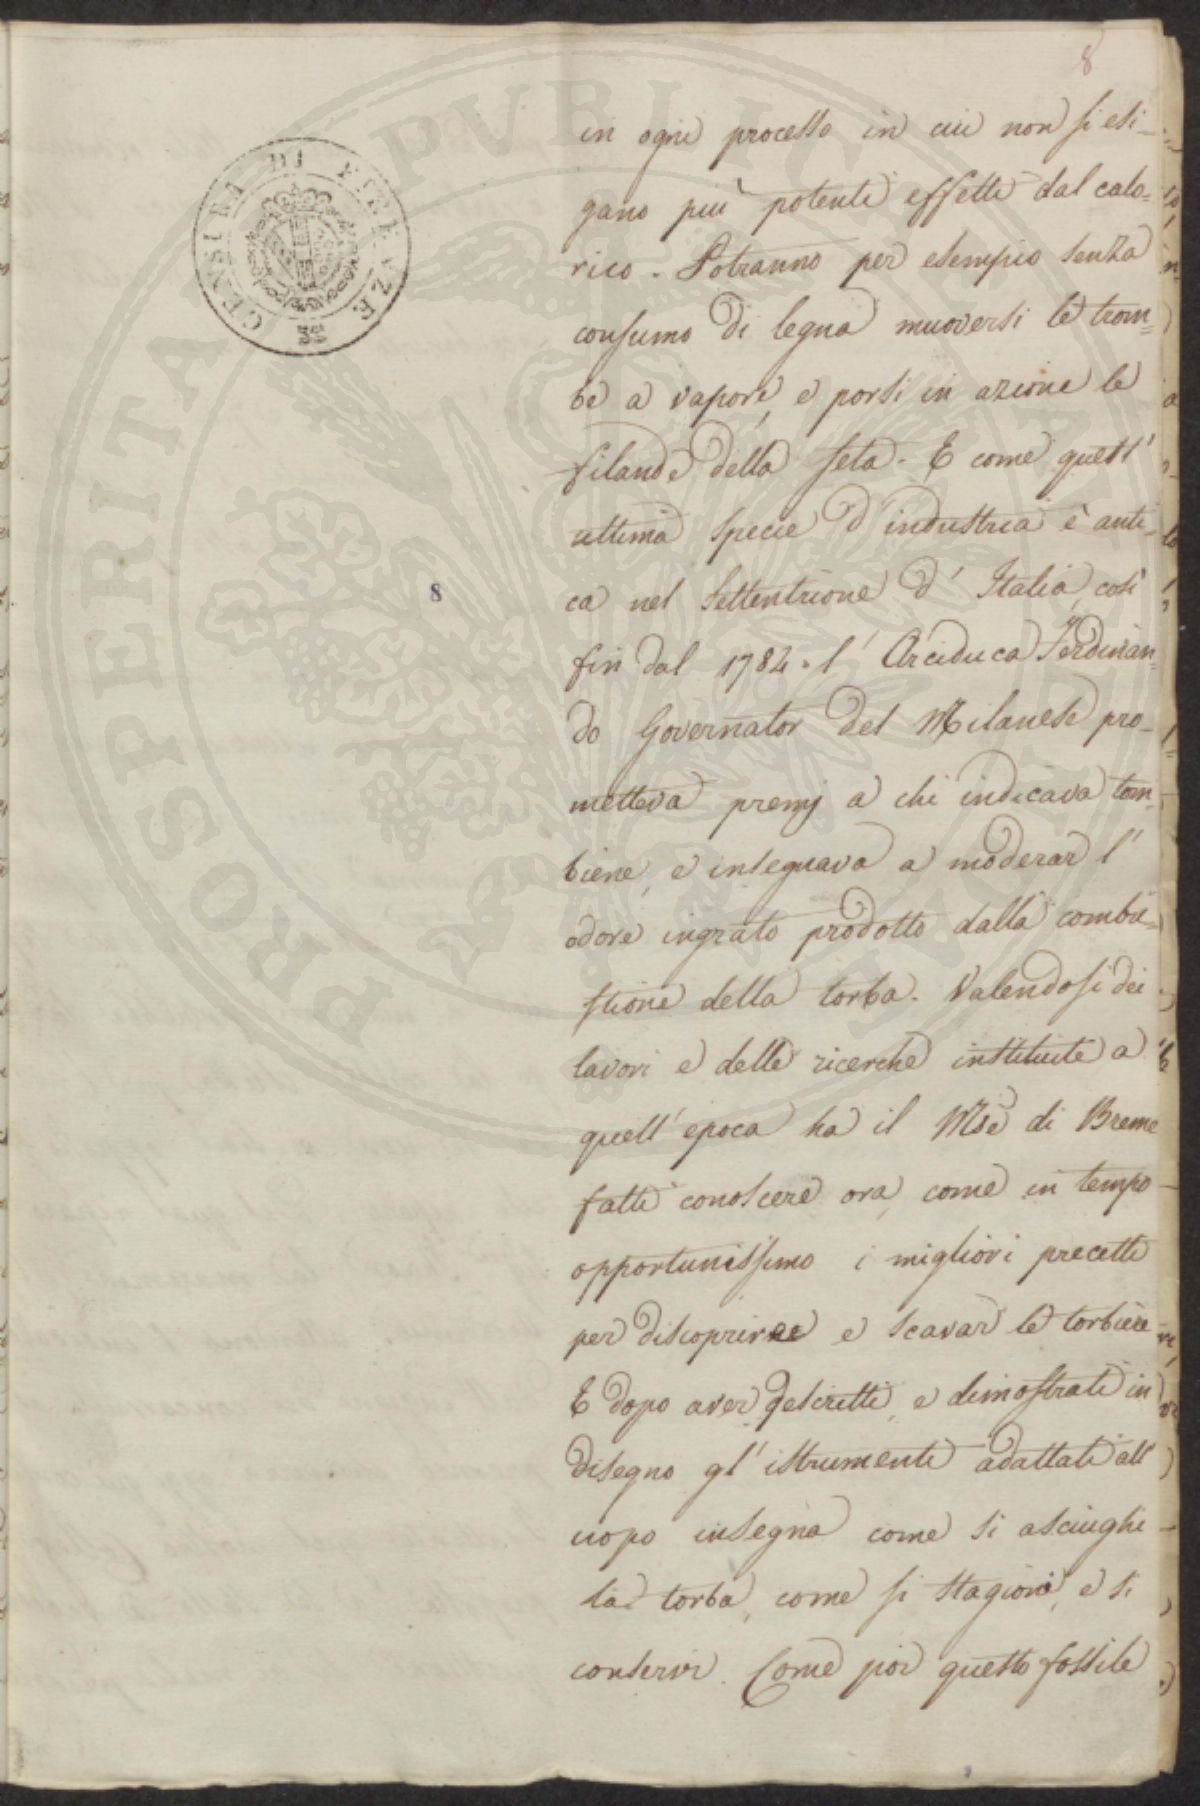 8
in ogni processo in cui non si esi-
gano più potenti effetti dal calo-
rico. Potranno per esempio senza
consumo di legna muoversi le trom-
be a vapore, e porsi in azione le
filande della seta. E come quest'
ultima specie d'industria è anti-
ca nel Settentrione d'Italia, così
fin dal 1784. l'Arciduca Ferdinan-
do Governator del Milanese pro-
metteva premj a chi indicava tor-
biere, e insegnava a moderar l'
odore ingrato prodotto dalla combu-
stione della torba. Valendosi dei
lavori e delle ricerche instituite a
quell'epoca ha il Mse di Breme
fatti conoscere ora, come in tempo
opportunissimo i migliori precetti
per discoprire e scavar le torbiere
E dopo aver descritti, e dimostrati in
disegno gl'istrumenti adattati all'
uopo insegna come si asciughi
la torba, come si stagioni, e si
conservi. Come poi questo fossile
8
CENSURA DI FIRENZE
PROSPERITATI PUBLICAE